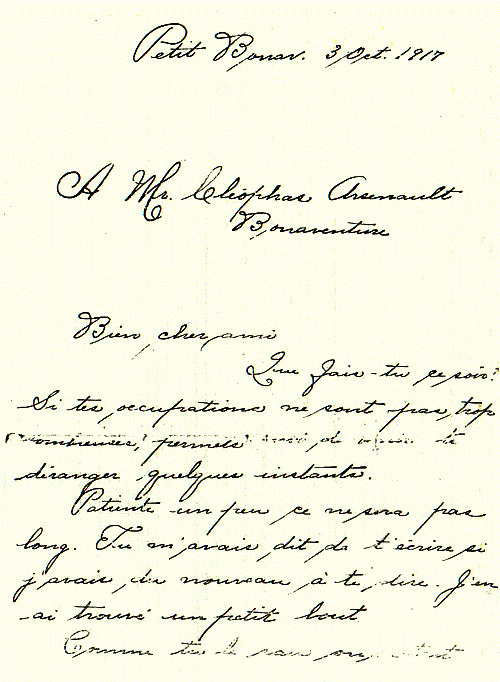 Petit Bonav. 3 Oct. 1917
A Mr. Cléophas Arsenault
Bonaventure
Bien cher ami
Que fais-tu ce soir?
Si tes occupations ne sont pas trop
nombreuses, permets de te
déranger quelques instants.
Patiente un peu ce ne sera pas
long. Tu m'avais dit de t'écrire si
j'avais du nouveau à te dire. J'en
ai trouvé un petit bout
Comme tu le sais on